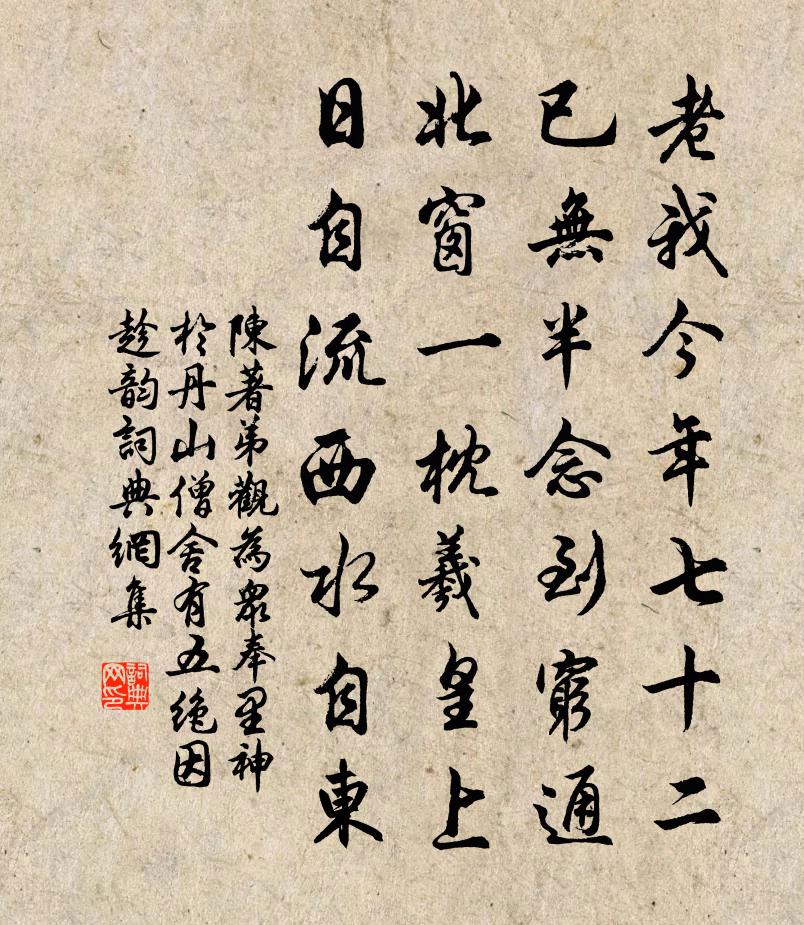 老我今年七十二
已無半念到窮通
北窗一枕羲皇上
日自流西水自東
陳著弟觀為眾奉里神
於丹山僧舍有五絕因
趁韵詞典網集
詞典网印